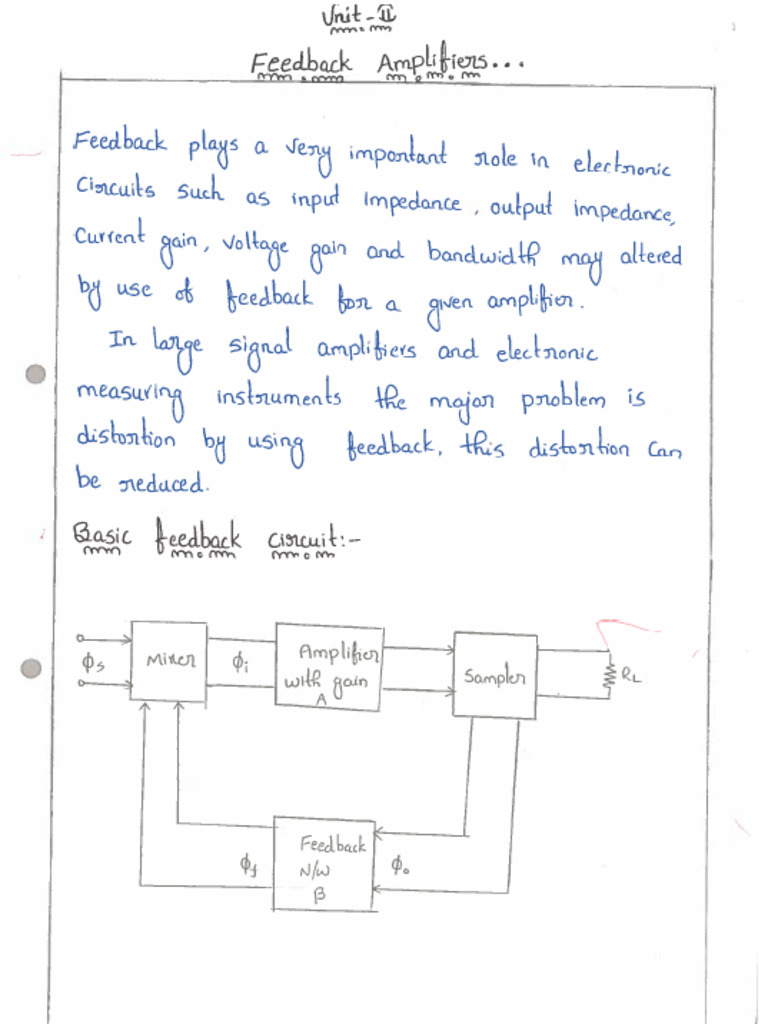 Unit-II
Feedback Amplifiers...
Feedback plays a very important role in electronic
Circuits such as input impedance, output impedance,
Current gain, voltage gain and bandwidth may altered
by use of feedback for a given amplifier.
In large signal amplifiers and electronic
measuring instruments the major problem is
distortion by using feedback, this distortion can
be reduced.
Basic feedback circuit:-
ϕs
Mixer
ϕi
Amplifier
with gain
A
Sampler
RL
ϕf
Feedback
N/W
β
ϕo